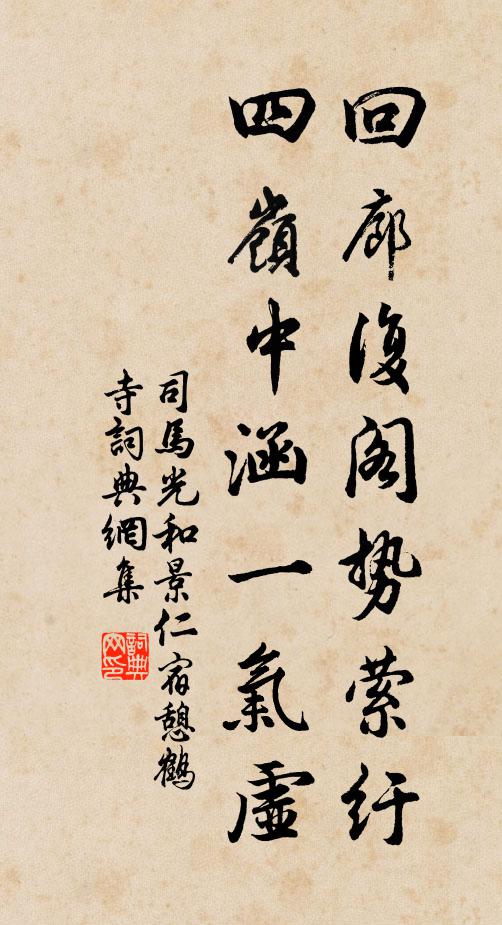 回廊復阁势萦紆
四嶺中涵一氣虛
司馬光和景仁宿憩鶴
寺詞典網集
詞典
网印